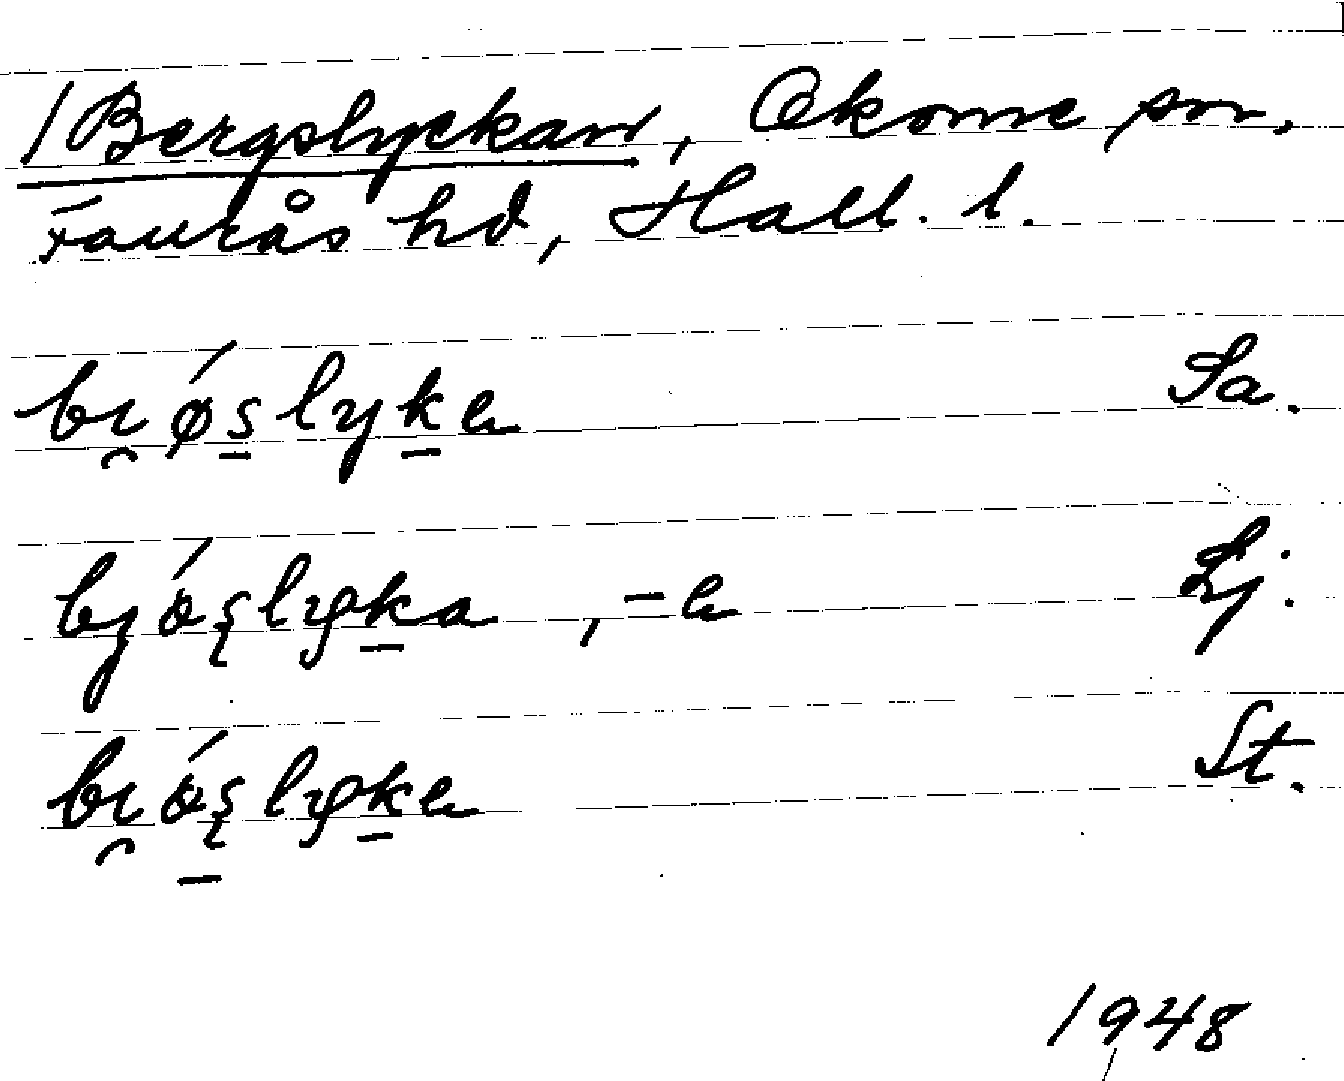 /Bergslyckan, Okome sn.
Faurås hd, Hall. l.
bı̯ǿs̠lyk̠a Sa.
bȷǿşlyk̠a, -a Lj.
bı̯ǿş̠lyk̠a St.
1948